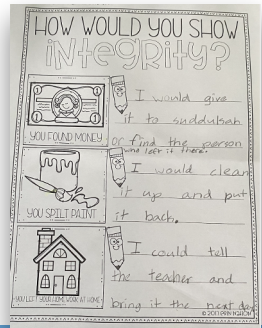 HOW WOULD YOU SHOW
INTEGRITY?
YOU FOUND MONEY
I would give
it to suddukah
or find the person
who left it there.
YOU SPILT PAINT
I would clean
it up and put
it back.
YOU LEFT YOUR HOME WORK AT HOME
I could tell
the teacher and
bring it the next day